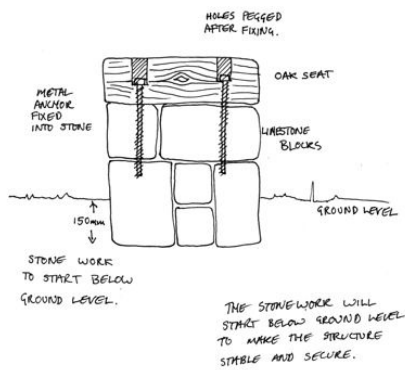 HOLES PEGGED
AFTER FIXING.
OAK SEAT
METAL
ANCHOR
FIXED
INTO STONE
LIMESTONE
BLOCKS
150mm
GROUND LEVEL
STONE WORK
TO START BELOW
GROUND LEVEL.
THE STONEWORK WILL
START BELOW GROUND LEVEL
TO MAKE THE STRUCTURE
STABLE AND SECURE.